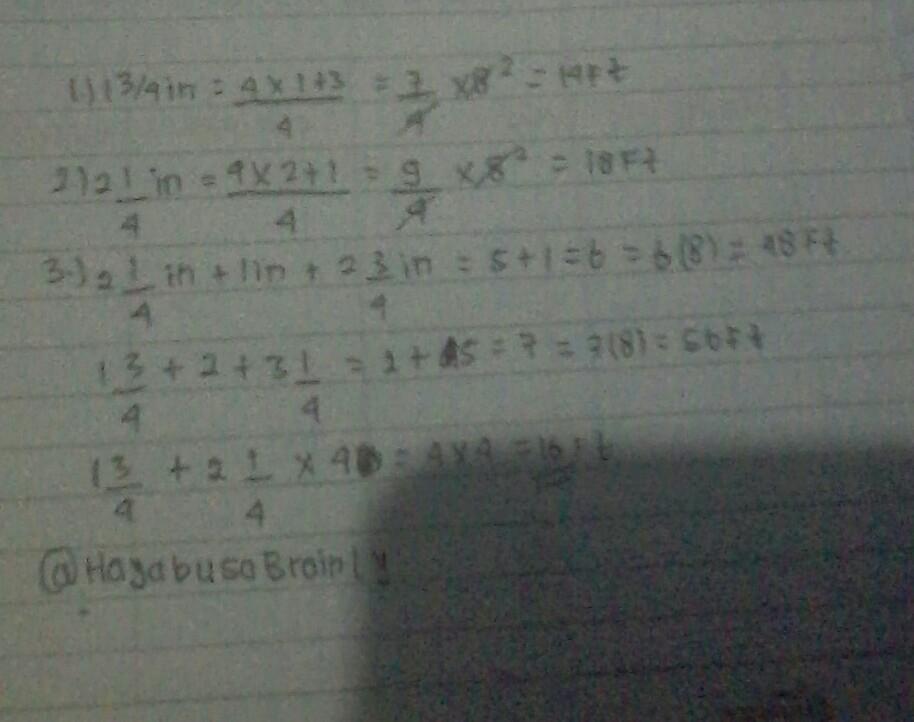 1) 1 3/4 in = 4 x 1+3 / 4 = 7/4 x 8 2 = 14 Ft
2) 2 1/4 in = 4 x 2+1 / 4 = 9/4 x 8 2 = 18 Ft
3.) 2 1/4 in + 1in + 2 3/4 in = 5+1 = 6 = 6(8) = 48 Ft
1 3/4 + 2 + 3 1/4 = 2 + 5 = 7 = 7(8) = 56 Ft
1 3/4 + 2 1/4 x 4 = 4x4 = 16 Ft
@HayabusaBrainly